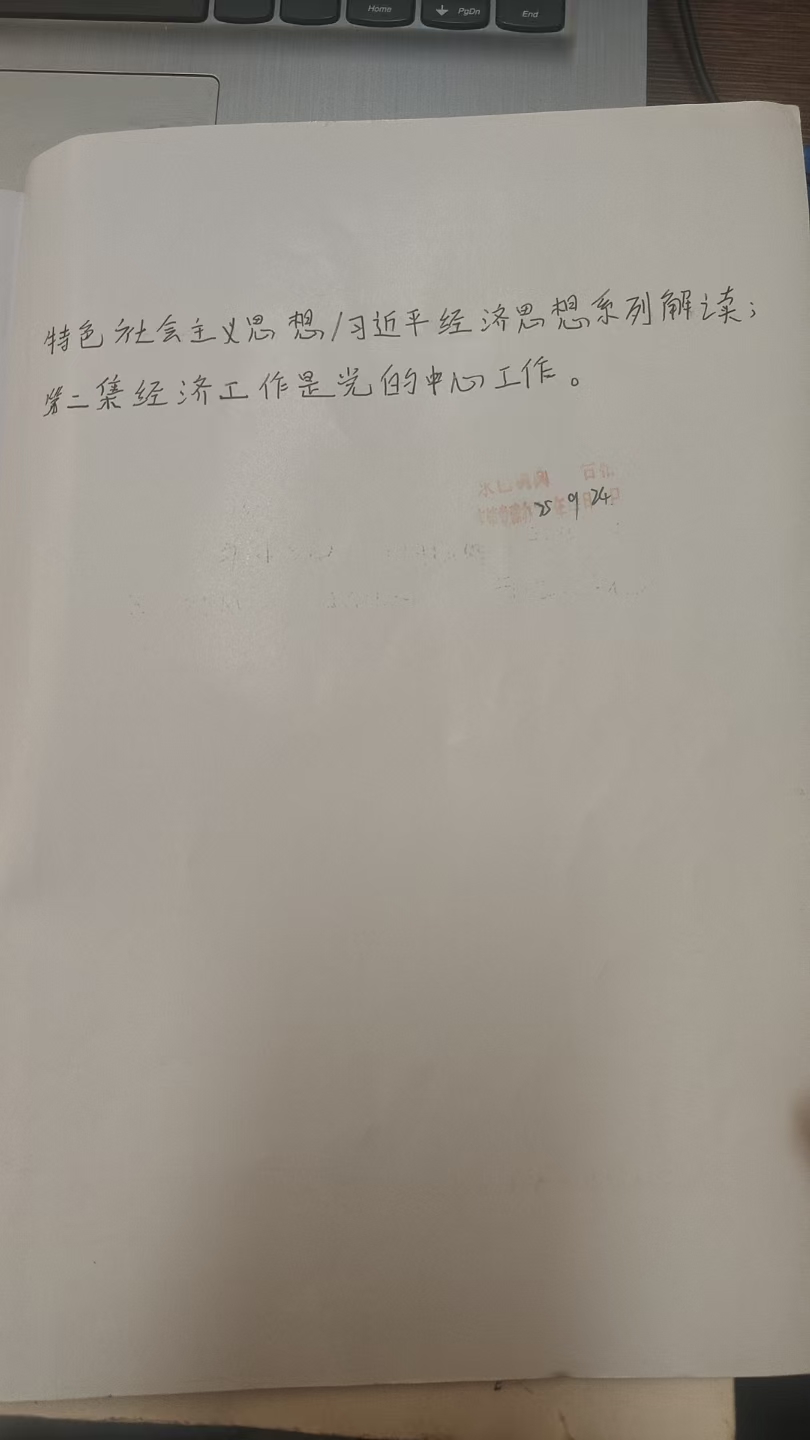 Home
PgDn
End
特色社会主义思想/习近平经济思想系列解读；
第二集经济工作是党的中心工作。
25 9 24